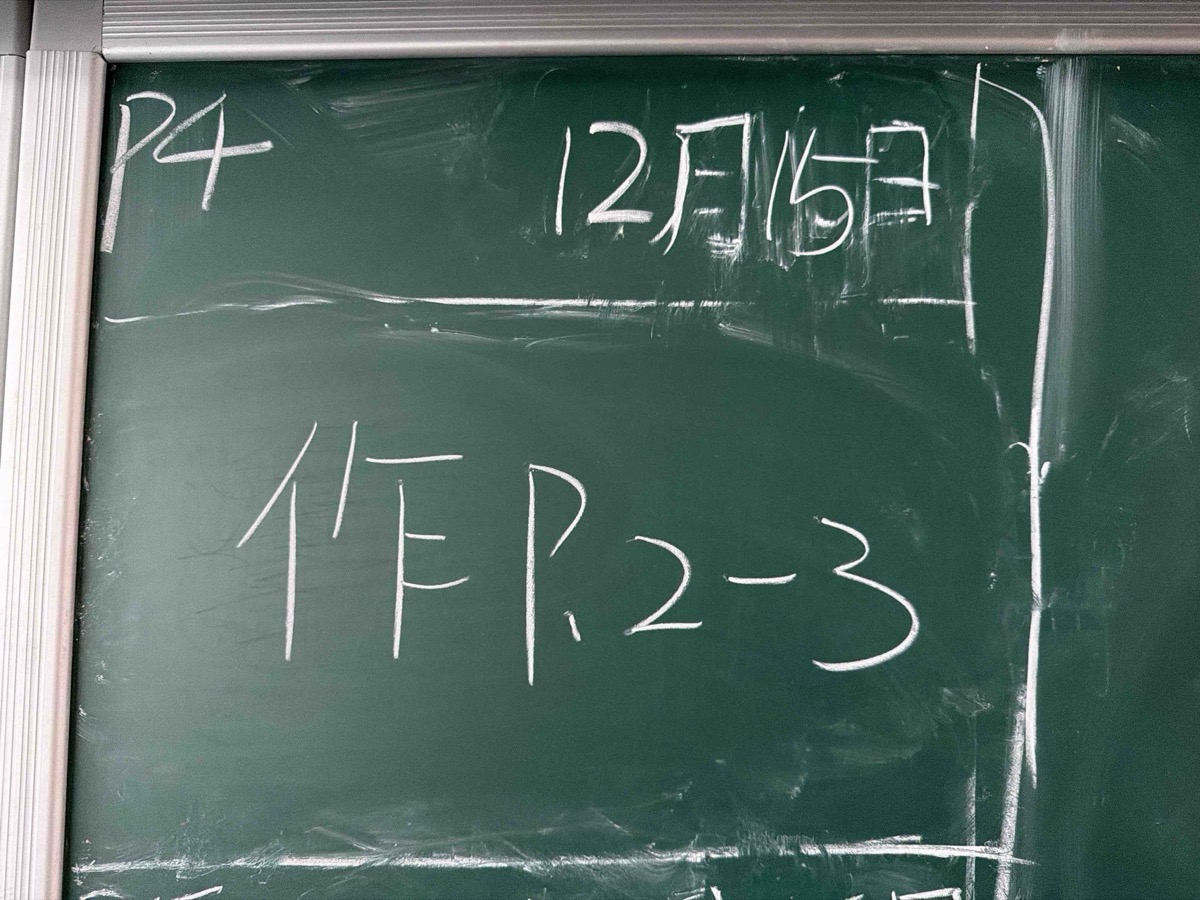 P4 12月15日
作P.2-3